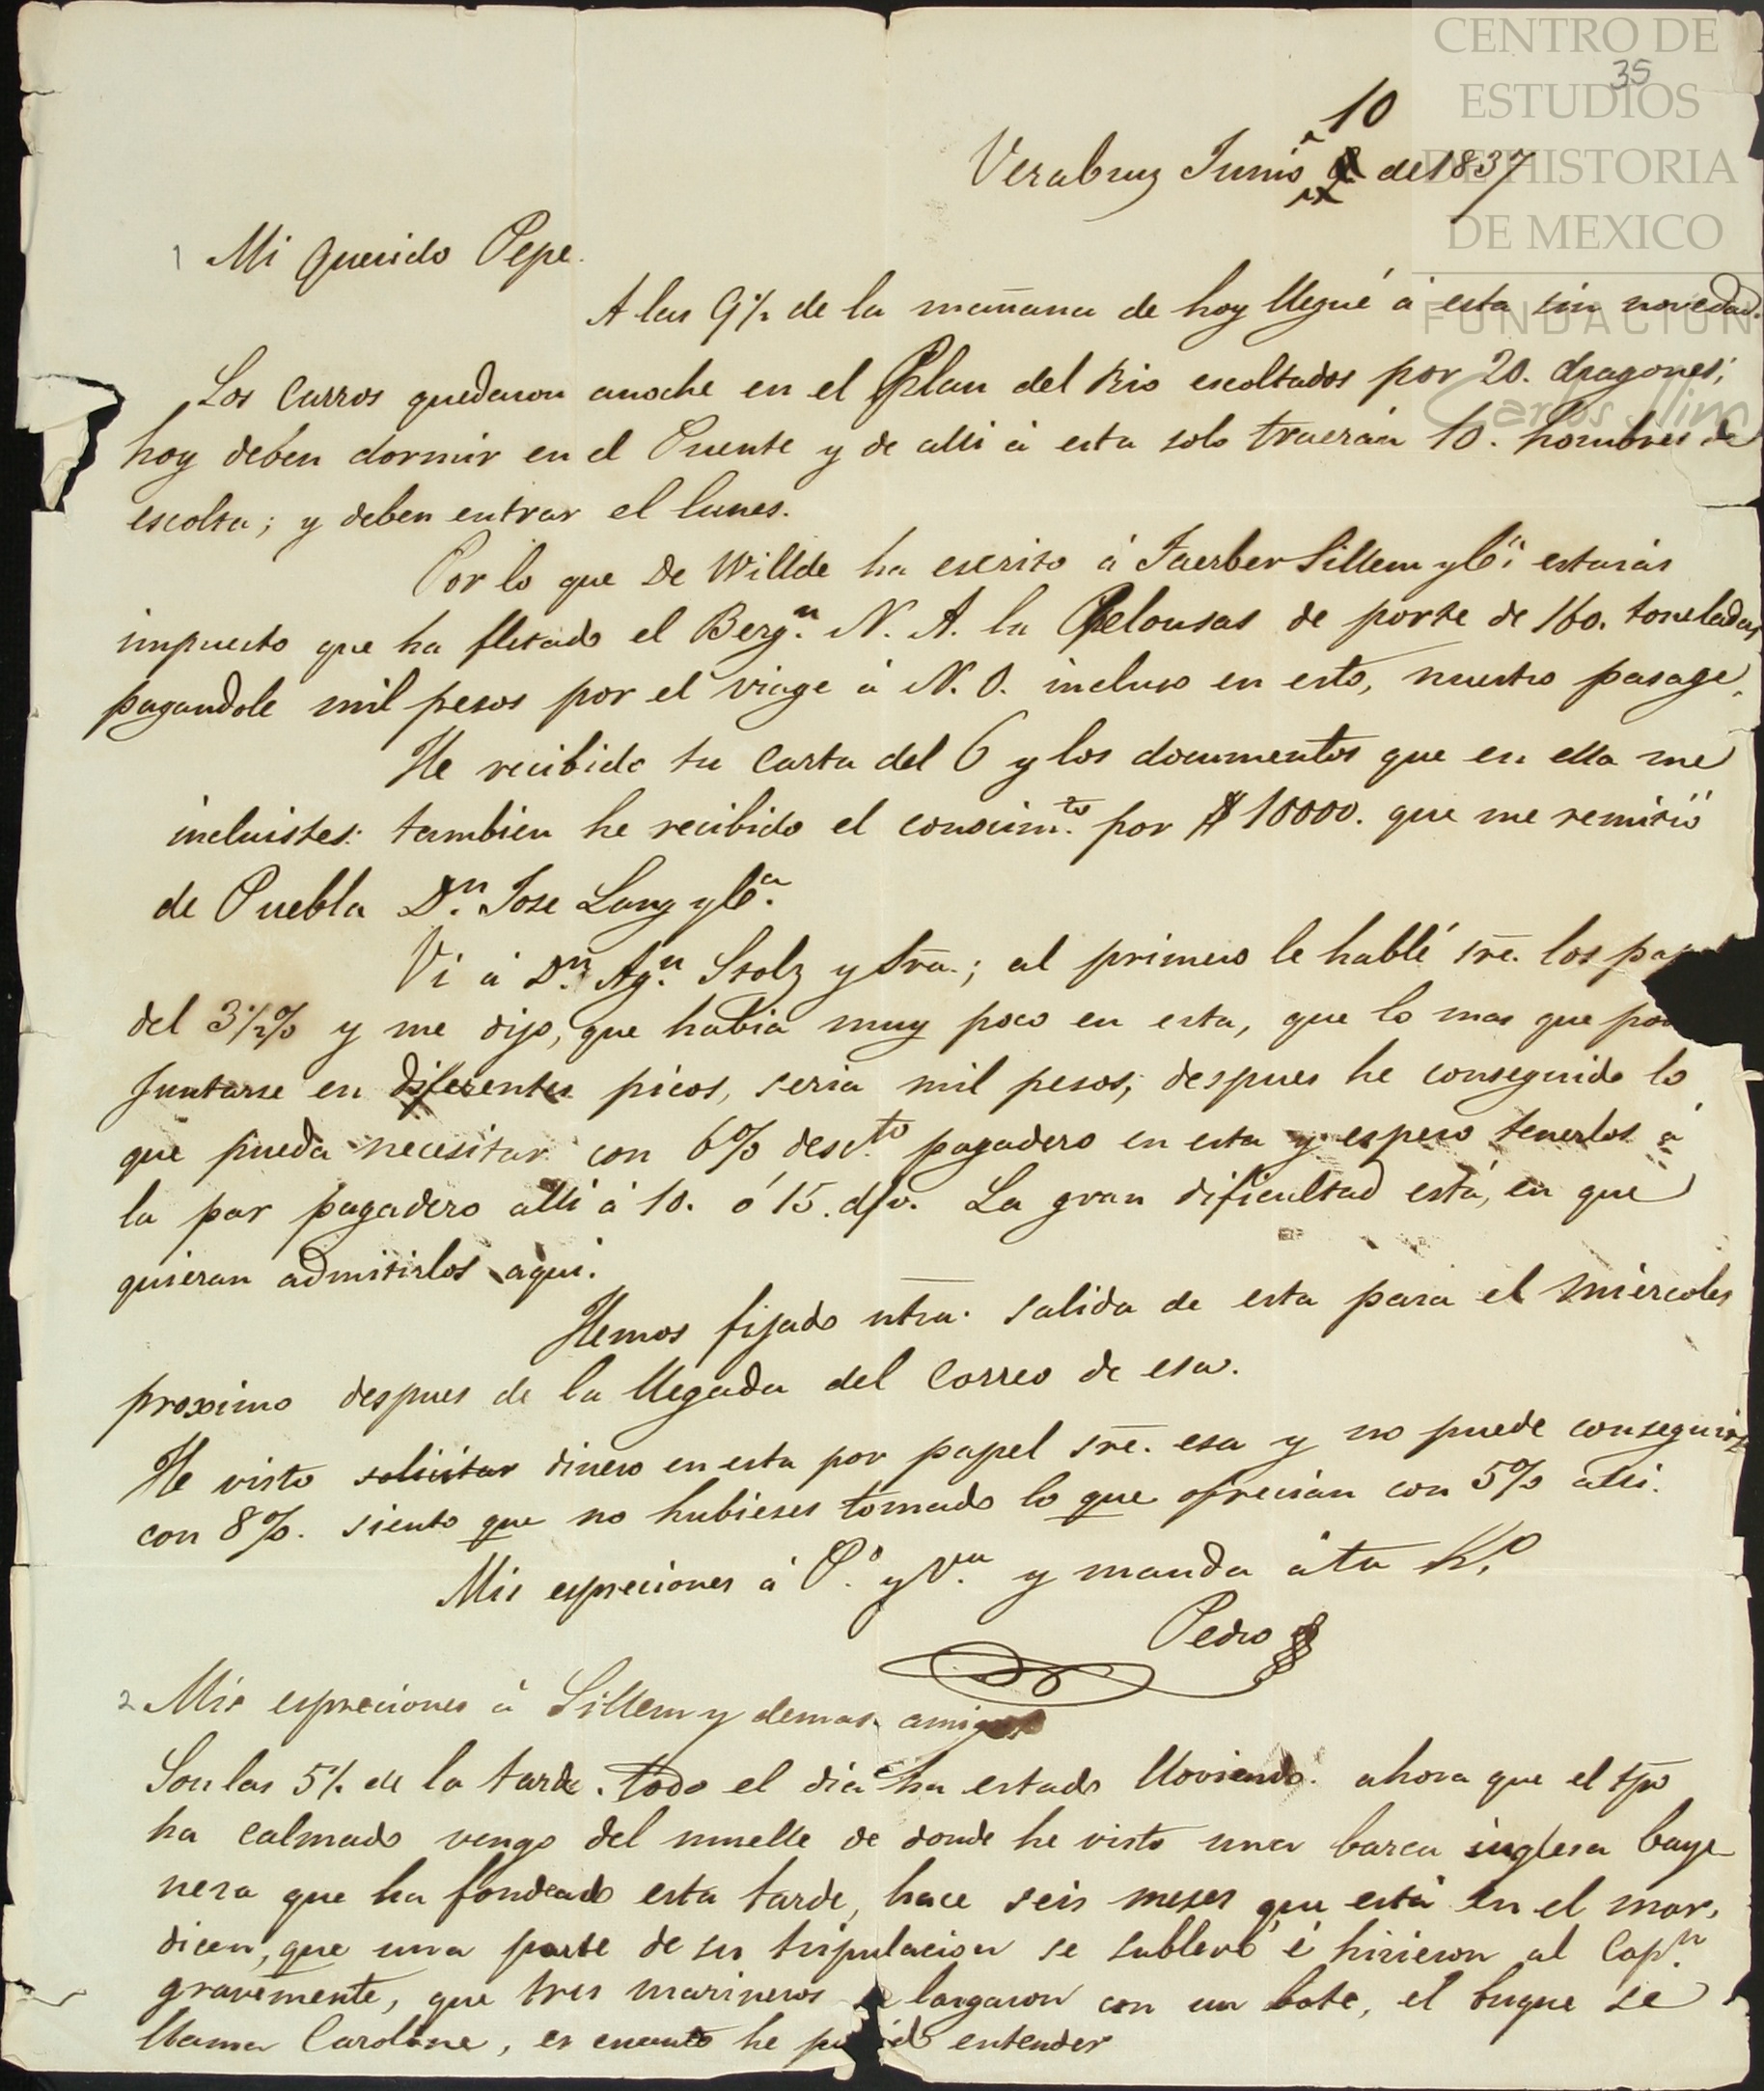 CENTRO DE
ESTUDIOS
DE HISTORIA
DE MEXICO
FUNDACION
Carlos Slim
35
10
Verabruz Junio de 1837
1 Mi Querido Pepe.
A las 9½ de la mañana de hoy llegué á esta sin novedad.
Los Carros quedaron anoche en el Plan del Rio escoltados por 20. dragones;
hoy deben dormir en el Puente y de alli á esta solo traerán 10. hombres de
escolta; y deben entrar el lunes.
Por lo que De Willde ha escrito á Faerber Sillem y Cª: estarás
impuesto que ha fletado el Bergn. N. A. la Opelousas de porte de 160. toneladas
pagandole mil pesos por el viage á N. O. incluso en esto, nuestro pasage.
He recibido tu Carta del 6 y los documentos que en ella me
incluistes: tambien he recibido el conocimto. por $10000. que me remitió
de Puebla Dn. Jose Lang y Cª.
Vi á Dn. Agn. Stolz y Sra.; al primero le hablé sre. los
del 3½% y me dijo, que habia muy poco en esta, que lo mas que
juntarse en diferentes picos, seria mil pesos; despues he conseguido lo
que pueda necesitar con 6% descto. pagadero en esta y espero tenerlos á
la par pagadero alli á 10. ó 15. d/v. La gran dificultad está, en que
quieran admitirlos aqui.
Hemos fijado ntra. salida de esta para el miércoles
proximo despues de la llegada del Correo de esa.
He visto solicitar dinero en esta por papel sre. esa y no puede conseguirse
con 8%. siento que no hubieses tomado lo que ofrecian con 5% alli.
Mis espreciones á P. y V. y manda á tu Ho.
Pedro
2 Mis espreciones á Sillem y demas amigos
Son las 5½ de la tarde. todo el dia ha estado lloviendo. ahora que el tpo
ha calmado vengo del muelle de donde he visto una barca inglesa baye
nera que ha fondeado esta tarde, hace seis meses que está en el mar,
dicen, que una parte de su tripulacion se sublevó é hirieron al Capn.
gravemente, que tres marineros se largaron con un bote, el buque se
llama Caroline, es cuanto he podido entender